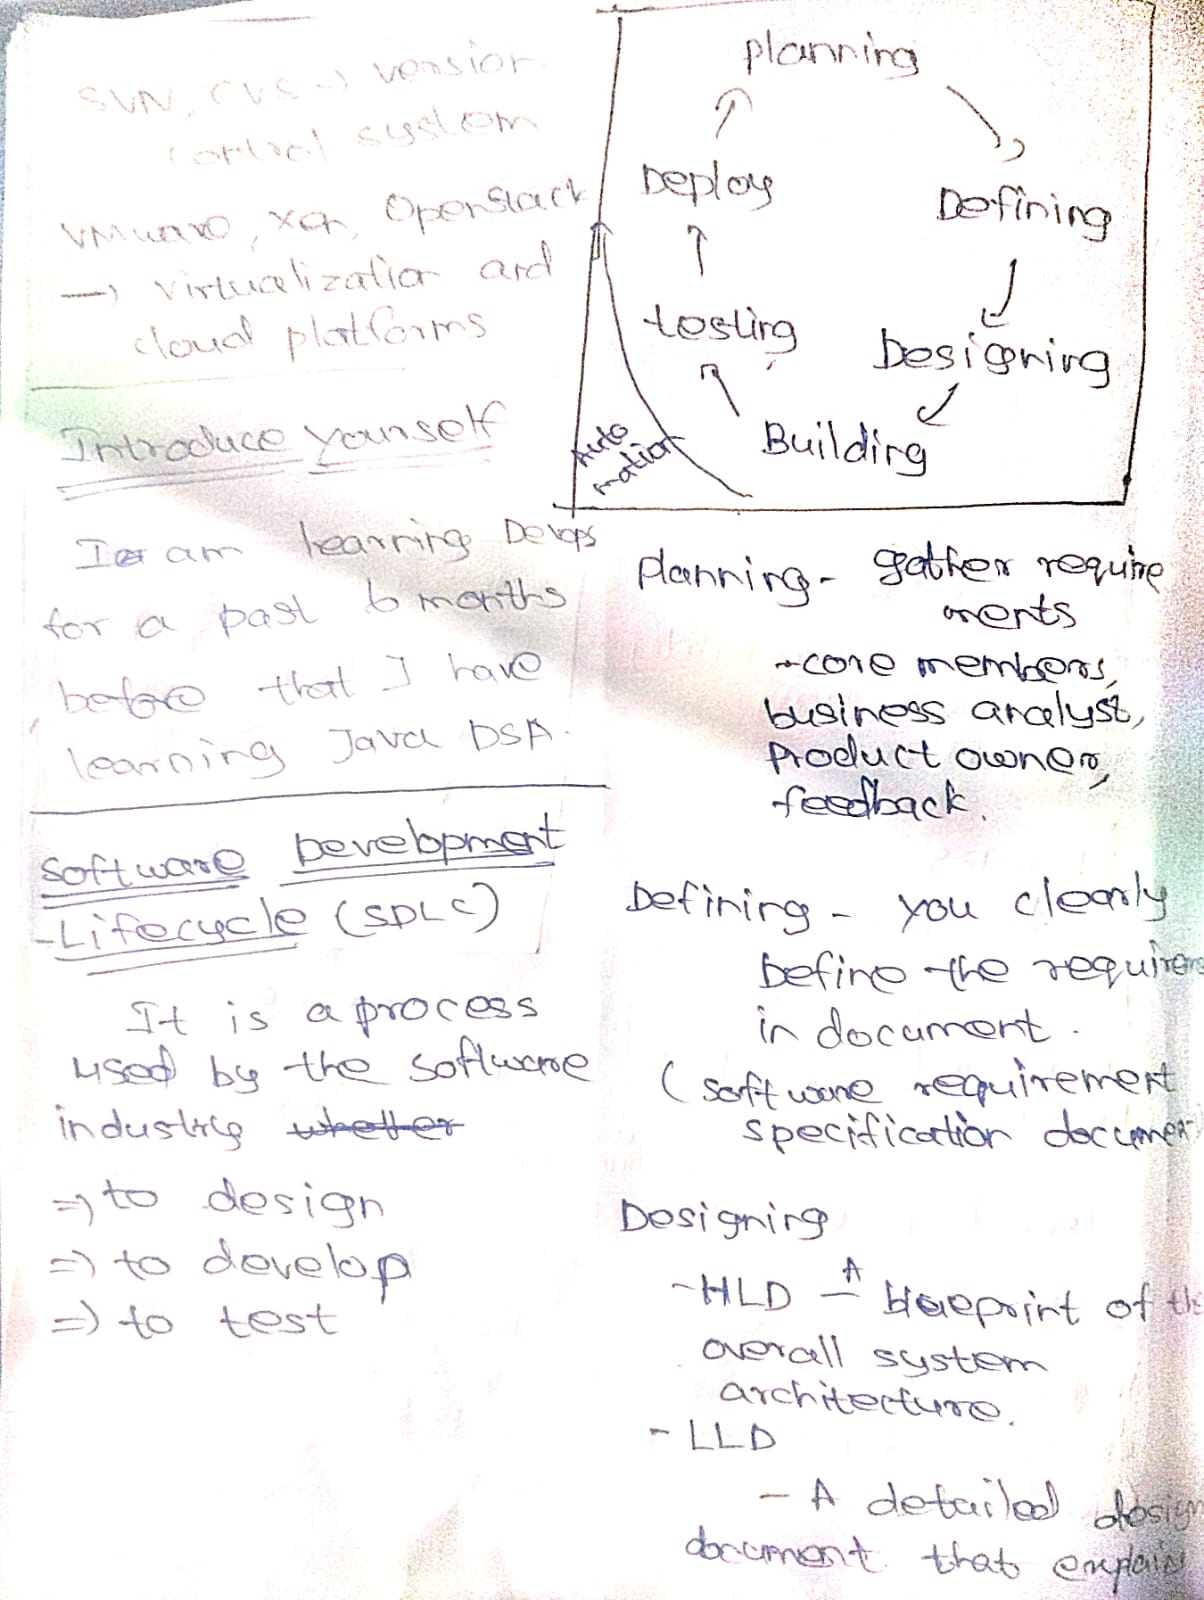 SVN, CVS → version
control system
VMware, Xen, OpenStack
→ virtualization and
cloud platforms
Introduce yourself
I am learning Devops
for a past 6 months
before that I have
learning Java DSA.
Software Development
Lifecycle (SDLC)
It is a process
used by the software
industry whether
⇒ to design
⇒ to develop
⇒ to test
planning
Deploy
Defining
testing
Designing
Building
Auto
mation
planning - gather require
ments
→ core members,
business analyst,
Product owner,
feedback.
Defining - you clearly
define the requirem
in document.
(software requirement
specification document
Designing
- HLD - A blueprint of the
overall system
architecture.
- LLD
- A detailed design
document that explain